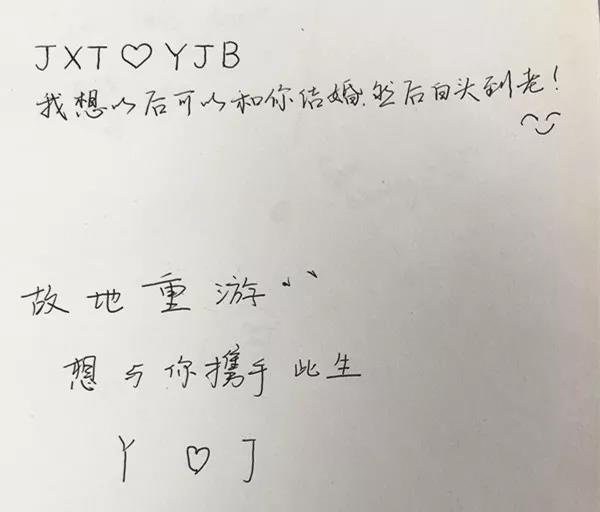 JXT♡YJB
我想以后可以和你结婚,然后白头到老!
故地重游
想与你携手此生
Y ♡ J